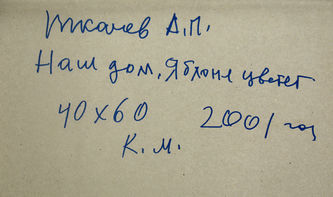 Ткачев А.П.
Наш дом, Яблоня цветет
40х60 2001 год
К.М.